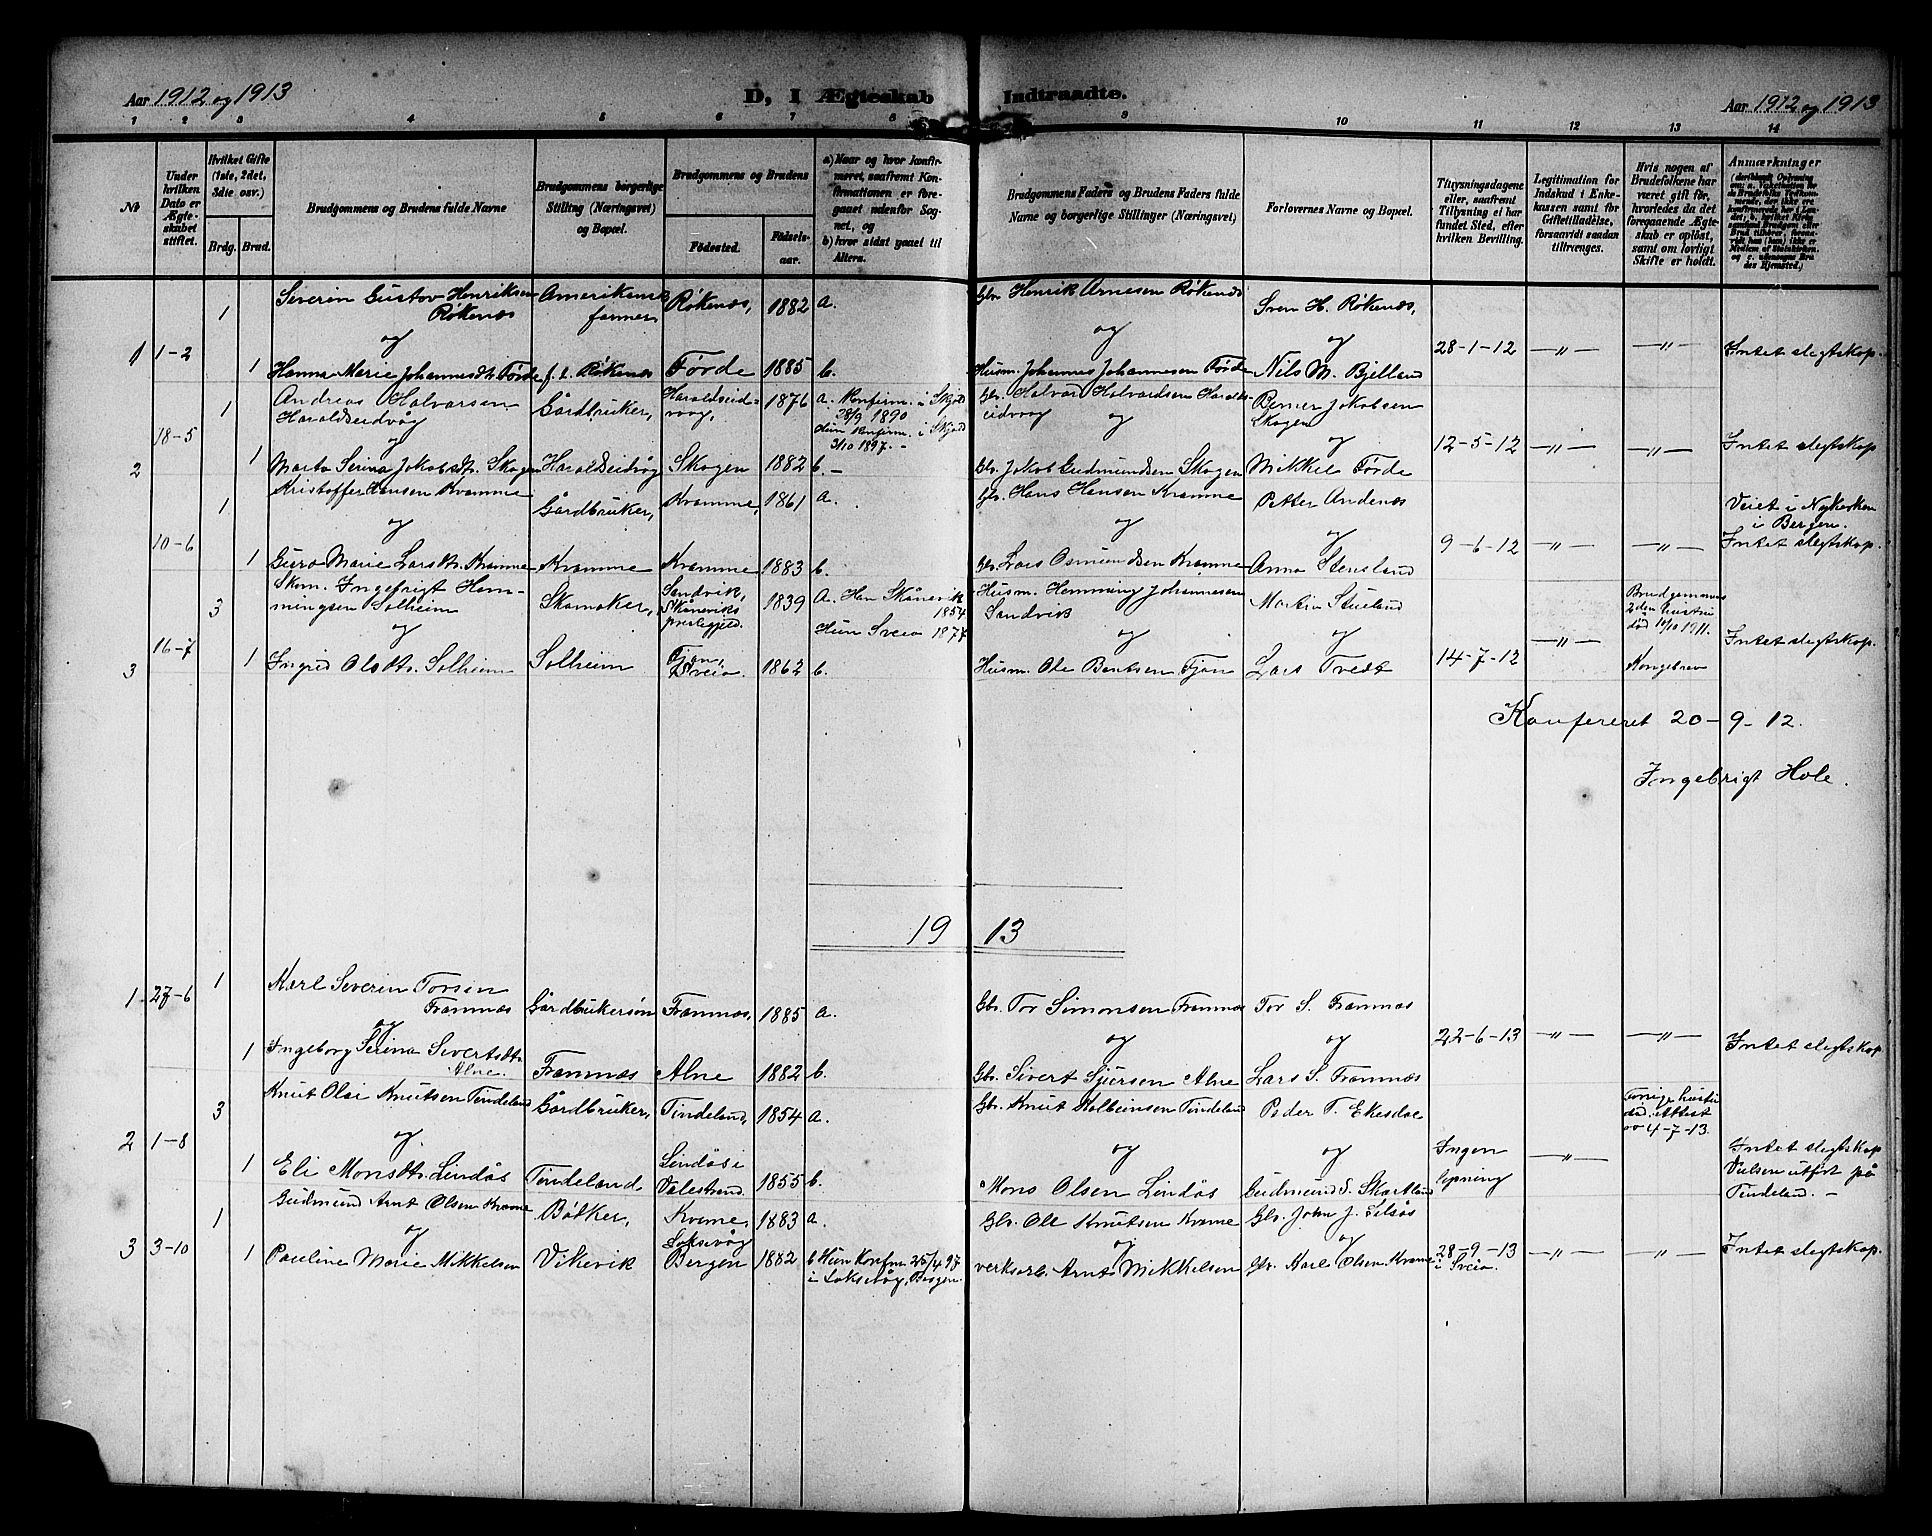 Aar 1912 og 1913
D, I Ægteskab Indtraadte.
Aar 1912 og 1913
1 2 3 4 5 6 7 8 9 10 11 12 13 14
№
Under hvilken Dato er Ægteskabet stiftet.
Hvilket Gifte (1ste, 2det, 3die osv.)
Brdg. Brud.
Brudgommens og Brudens fulde Navne
Brudgommens borgerlige Stilling (Næringsvei) og Bopæl.
Brudgommens og Brudens
Fødested.
Fødselsaar.
a) Naar og hvor konfirmeret, saafremt Konfirmationen er foregaaet udenfor Sognet, og
b) hvor sidst gaaet til Alters.
Brudgommens Faders og Brudens Faders fulde Navne og borgerlige Stillinger (Næringsvei)
Forlovernes Navne og Bopæl.
Tillysningsdagene eller, saafremt Tillysning ei har fundet Sted, efter hvilken Bevilling.
Legitimation for Indskud i Enkekassen samt for Giftetilladelse, forsaavidt saadan tiltrænges.
Hvis nogen af Brudefolkene har været gift før, hvorledes da det foregaaende Ægteskab er opløst, samt om lovligt Skifte er holdt.
Anmærkninger
1 Severin Gustav Henriksen Røkenes Amerikansk farmer Røkenæs, 1882 a. Gbr. Henrik Arnesen Røkenæs Sven H. Røkenæs,
og og og
1 1-2 28-1-12 —〃— —〃— Intet slegtskap.
1 Hanna Marie Johannesdt. Førde f. t. Røkenæs Førde 1885 b. Husm. Johannes Johannesen Førde Nils M. Bjelland
1 Andreas Halvarsen Haraldseidvåg Gårdbruker, Haraldseidvåg, 1876 a. Konfirm. i Skjold 28/9 1890 Gbr. Halvard Halvardsen Haraldseidvåg Berner Jakobsen Skogen
Hun konfirm. i Skjold 3/10 1897.-
18-5 og og og 12-5-12 —〃— —〃— Intet slegtskap
2 1 Marta Serina Jakobsdt. Skogen Haraldseidvåg Skogen 1882 b.- Gbr. Jakob Gudmundsen Skogen Mikkel Førde
1 Kristoffer Hansen Kvamme Gårdbruker, Kvamme, 1861 a. Gbr. Hans Hansen Kvamme Petter Andenæs Veiet i Nykirken i Bergen.
10-6 og og og 9-6-12 —〃— —〃— Intet slegtskap.
1 Guro Marie Larsdt. Kvamme Kvamme Kvamme 1883 b. Gbr. Lars Osmundsen Kvamme Anna Stensland
3 Skm. Ingefrigt Hemmingsen Solheim Skomaker, Sandvik, Skåneviks prestegjeld. 1839 a. Han Skånevik 1854 Husm. Hemming Johannesen Sandvik Martin Stueland Brudgommens 2den hustru død 10/10 1911.
Hun Sveio 1877
16-7 og og og —〃— Intet slegtskap.
3 1 Ingrid Olsdtr. Solheim Solheim Tjøn, Sveio. 1862 b. Husm. Ole Bentsen Tjøn Lars Tvedt 14-7-12 Kongebrev
Konfereret 20-9-12.
Ingebrigt Hole.
1913
1 27-6 1 Karl Severin Torsen Framnæs Gårdbrukersøn Framnæs, 1885 a. Gbr. Tor Simonsen Framnæs Tor S. Framnæs
og og og 22-6-13 —〃— —〃— Intet slegtskap
1 Ingeborg Serina Sivertsdtr. Alne. Framnæs Alne 1882 b. Gbr. Sivert Sjursen Alne Lars S. Framnæs
3 Knut Olai Knutsen Tindeland Gårdbruker, Tindeland, 1854 a. Gbr. Knut Kolbeinsen Tindeland Peder T. Ekesdal Forrige hustru død. Attest av 4-7-13.
2 1-8 og og og Ingen lysning —〃— Intet slegtskap Vielsen utført på Tindeland.-
1 Eli Monsdtr. Lindøs Tindeland Lindøs i Valestrand. 1855 b. Mons Olsen Lindøs Gudmund S. Skartland
1 Gudmund Arnt Olsen Kvame Bødker, Kvame, 1883 a. Gbr. Ole Knutsen Kvame Gbr. John J. Silsøs
og og og
3 3-10 1 Pauline Marie Mikkelsen Vikevik Laksevåg Bergen 1882 b Hun konfirm. 25/4 97 i Laksevåg, Bergen verksarb. Arnt Mikkelsen Gbr. Karl Olsen Kvame 28-9-13 i Sveio. —〃— —〃— Intet slegtskap.